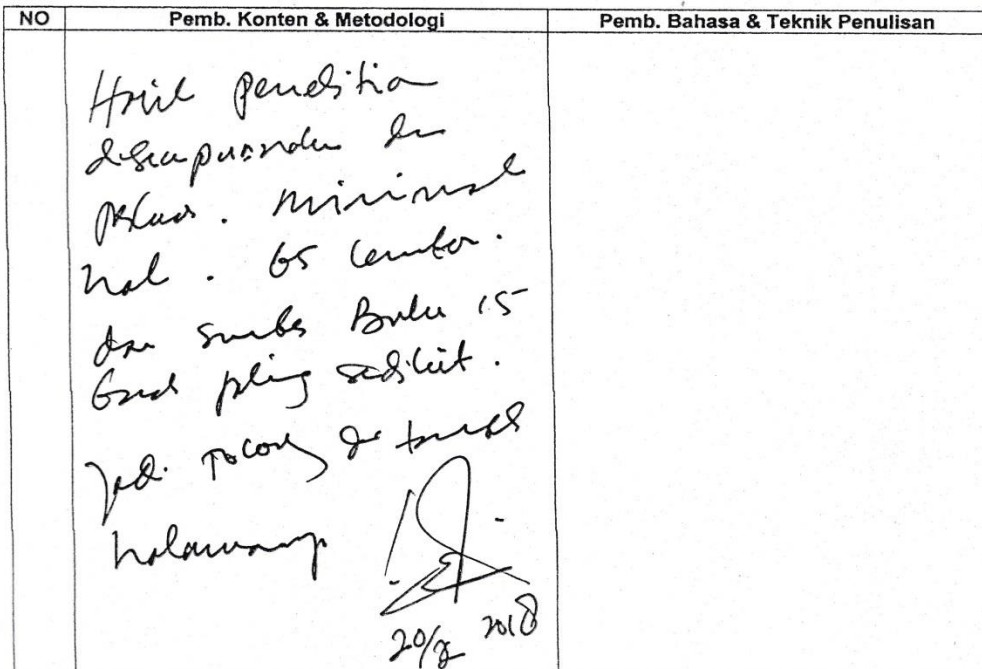 NO Pemb. Konten & Metodologi Pemb. Bahasa & Teknik Penulisan
Hasil penelitian
disempurnakan dan
Minimal
hal. 65 lembar.
dan sumber Buku 15
Buah paling sedikit.
Jadi tolong di tambah
halamannya
20/ 2018